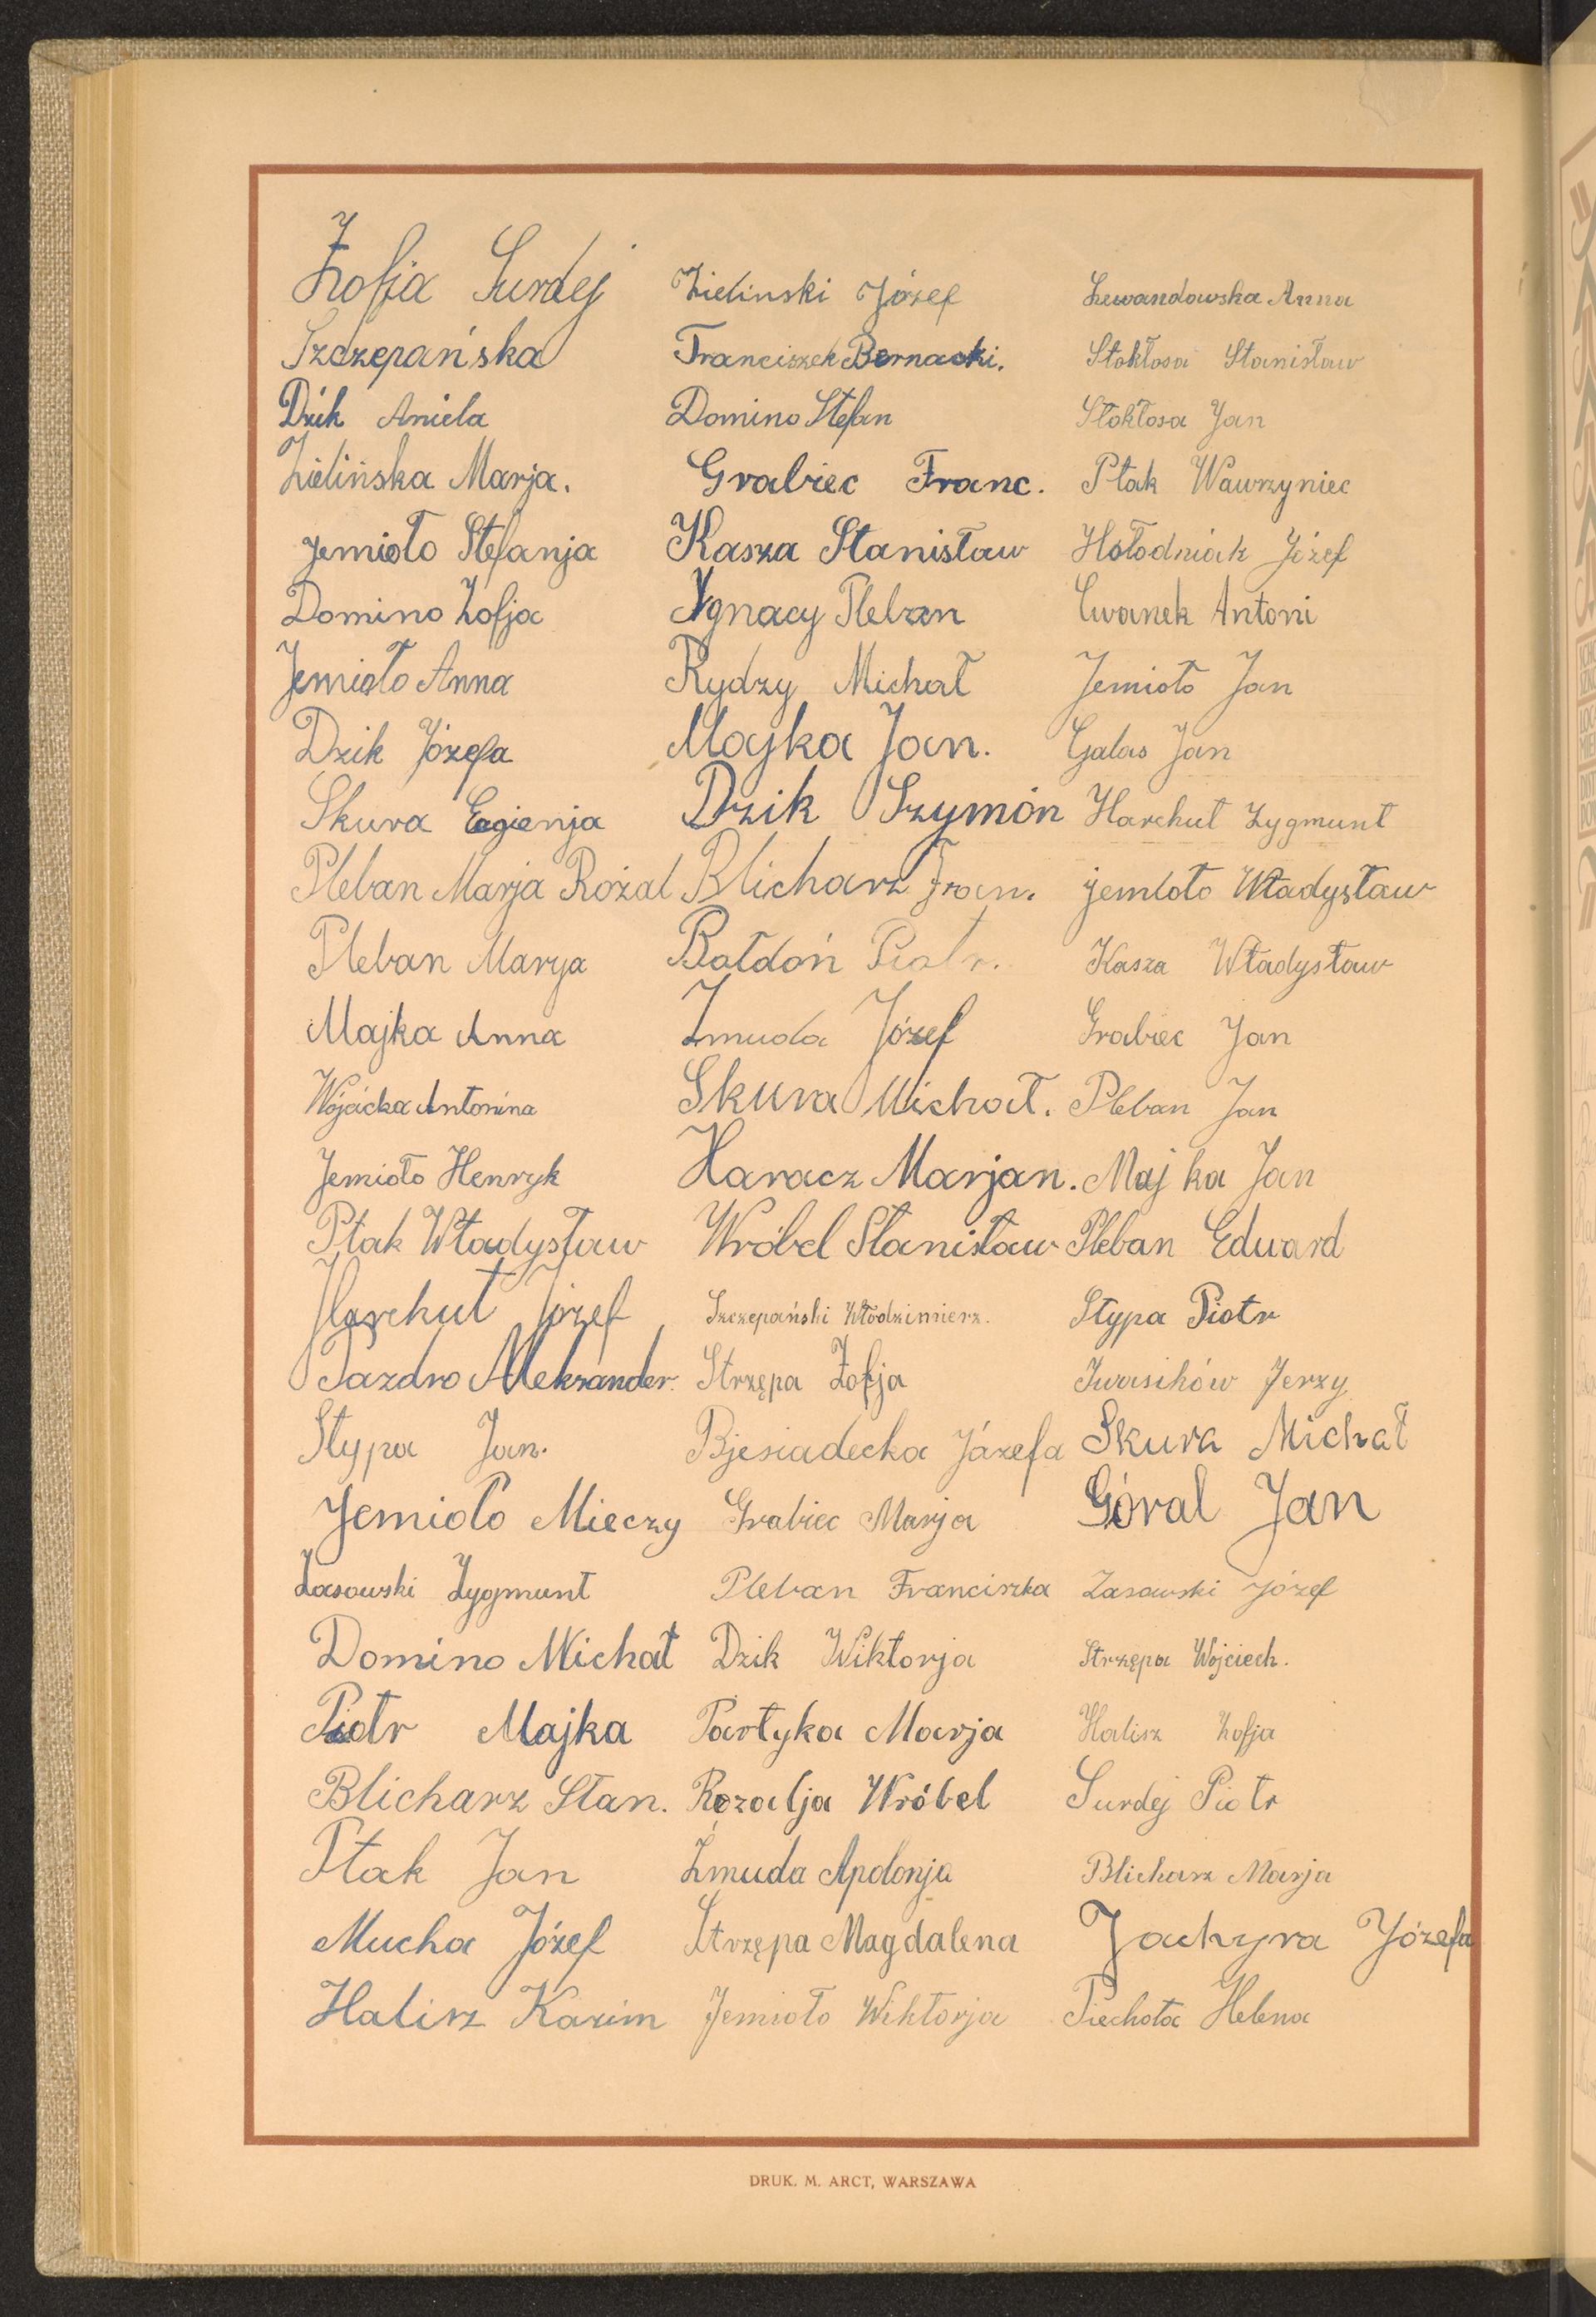 Zofja Surdej
Szczepańska
Dzik Aniela
Zielińska Marja.
Jemioło Stefanja
Domino Zofja
Jemioło Anna
Dzik Józefa
Skura Eugienja
Pleban Marja Rozal
Pleban Marya
Majka Anna
Wójcicka Antonina
Jemioło Henryk
Ptak Władysław
Harchut Józef
Pazdro Aleksander.
Stypa Jan.
Jemioło Mieczy
Zasowski Zygmunt
Domino Michał
Piotr Majka
Blicharz Stan.
Ptak Jan
Mucha Józef
Halisz Kazim
Zielinski Józef
Franciszek Bernacki.
Domino Stefan
Grabiec Franc.
Kasza Stanisław
Ygnacy Pleban
Rydzy Michał
Majka Jan.
Dzik Szymón
Blicharz Fran.
Bałdoń Piotr.
Zmuda Józef
Skura Michał.
Haracz Marjan.
Wróbel Stanisław
Szczepański Włodzimierz.
Strzępa Zofja
Bjesiadecka Józefa
Grabiec Marja
Pleban Franciszka
Dzik Wiktorja
Partyka Marja
Rozalja Wróbel
Żmuda Apolonja
Strzępa Magdalena
Jemioło Wiktorja
Lewandowska Anna
Stokłosa Stanisław
Stokłosa Jan
Ptak Wawrzyniec
Hołodniak Józef
Cwanek Antoni
Jemioło Jan
Galas Jan
Harchut Zygmunt
jemioło Władysław
Kasza Władysław
Grabiec Jan
Pleban Jan
Majka Jan
Pleban Eduard
Stypa Piotr
Iwasików Jerzy
Skura Michał
Góral Jan
Zasowski Józef
Strzępa Wojciech.
Halisz Zofja
Surdej Piotr
Blicharz Marja
Jachyra Józefa
Piechota Helena
DRUK. M. ARCT, WARSZAWA